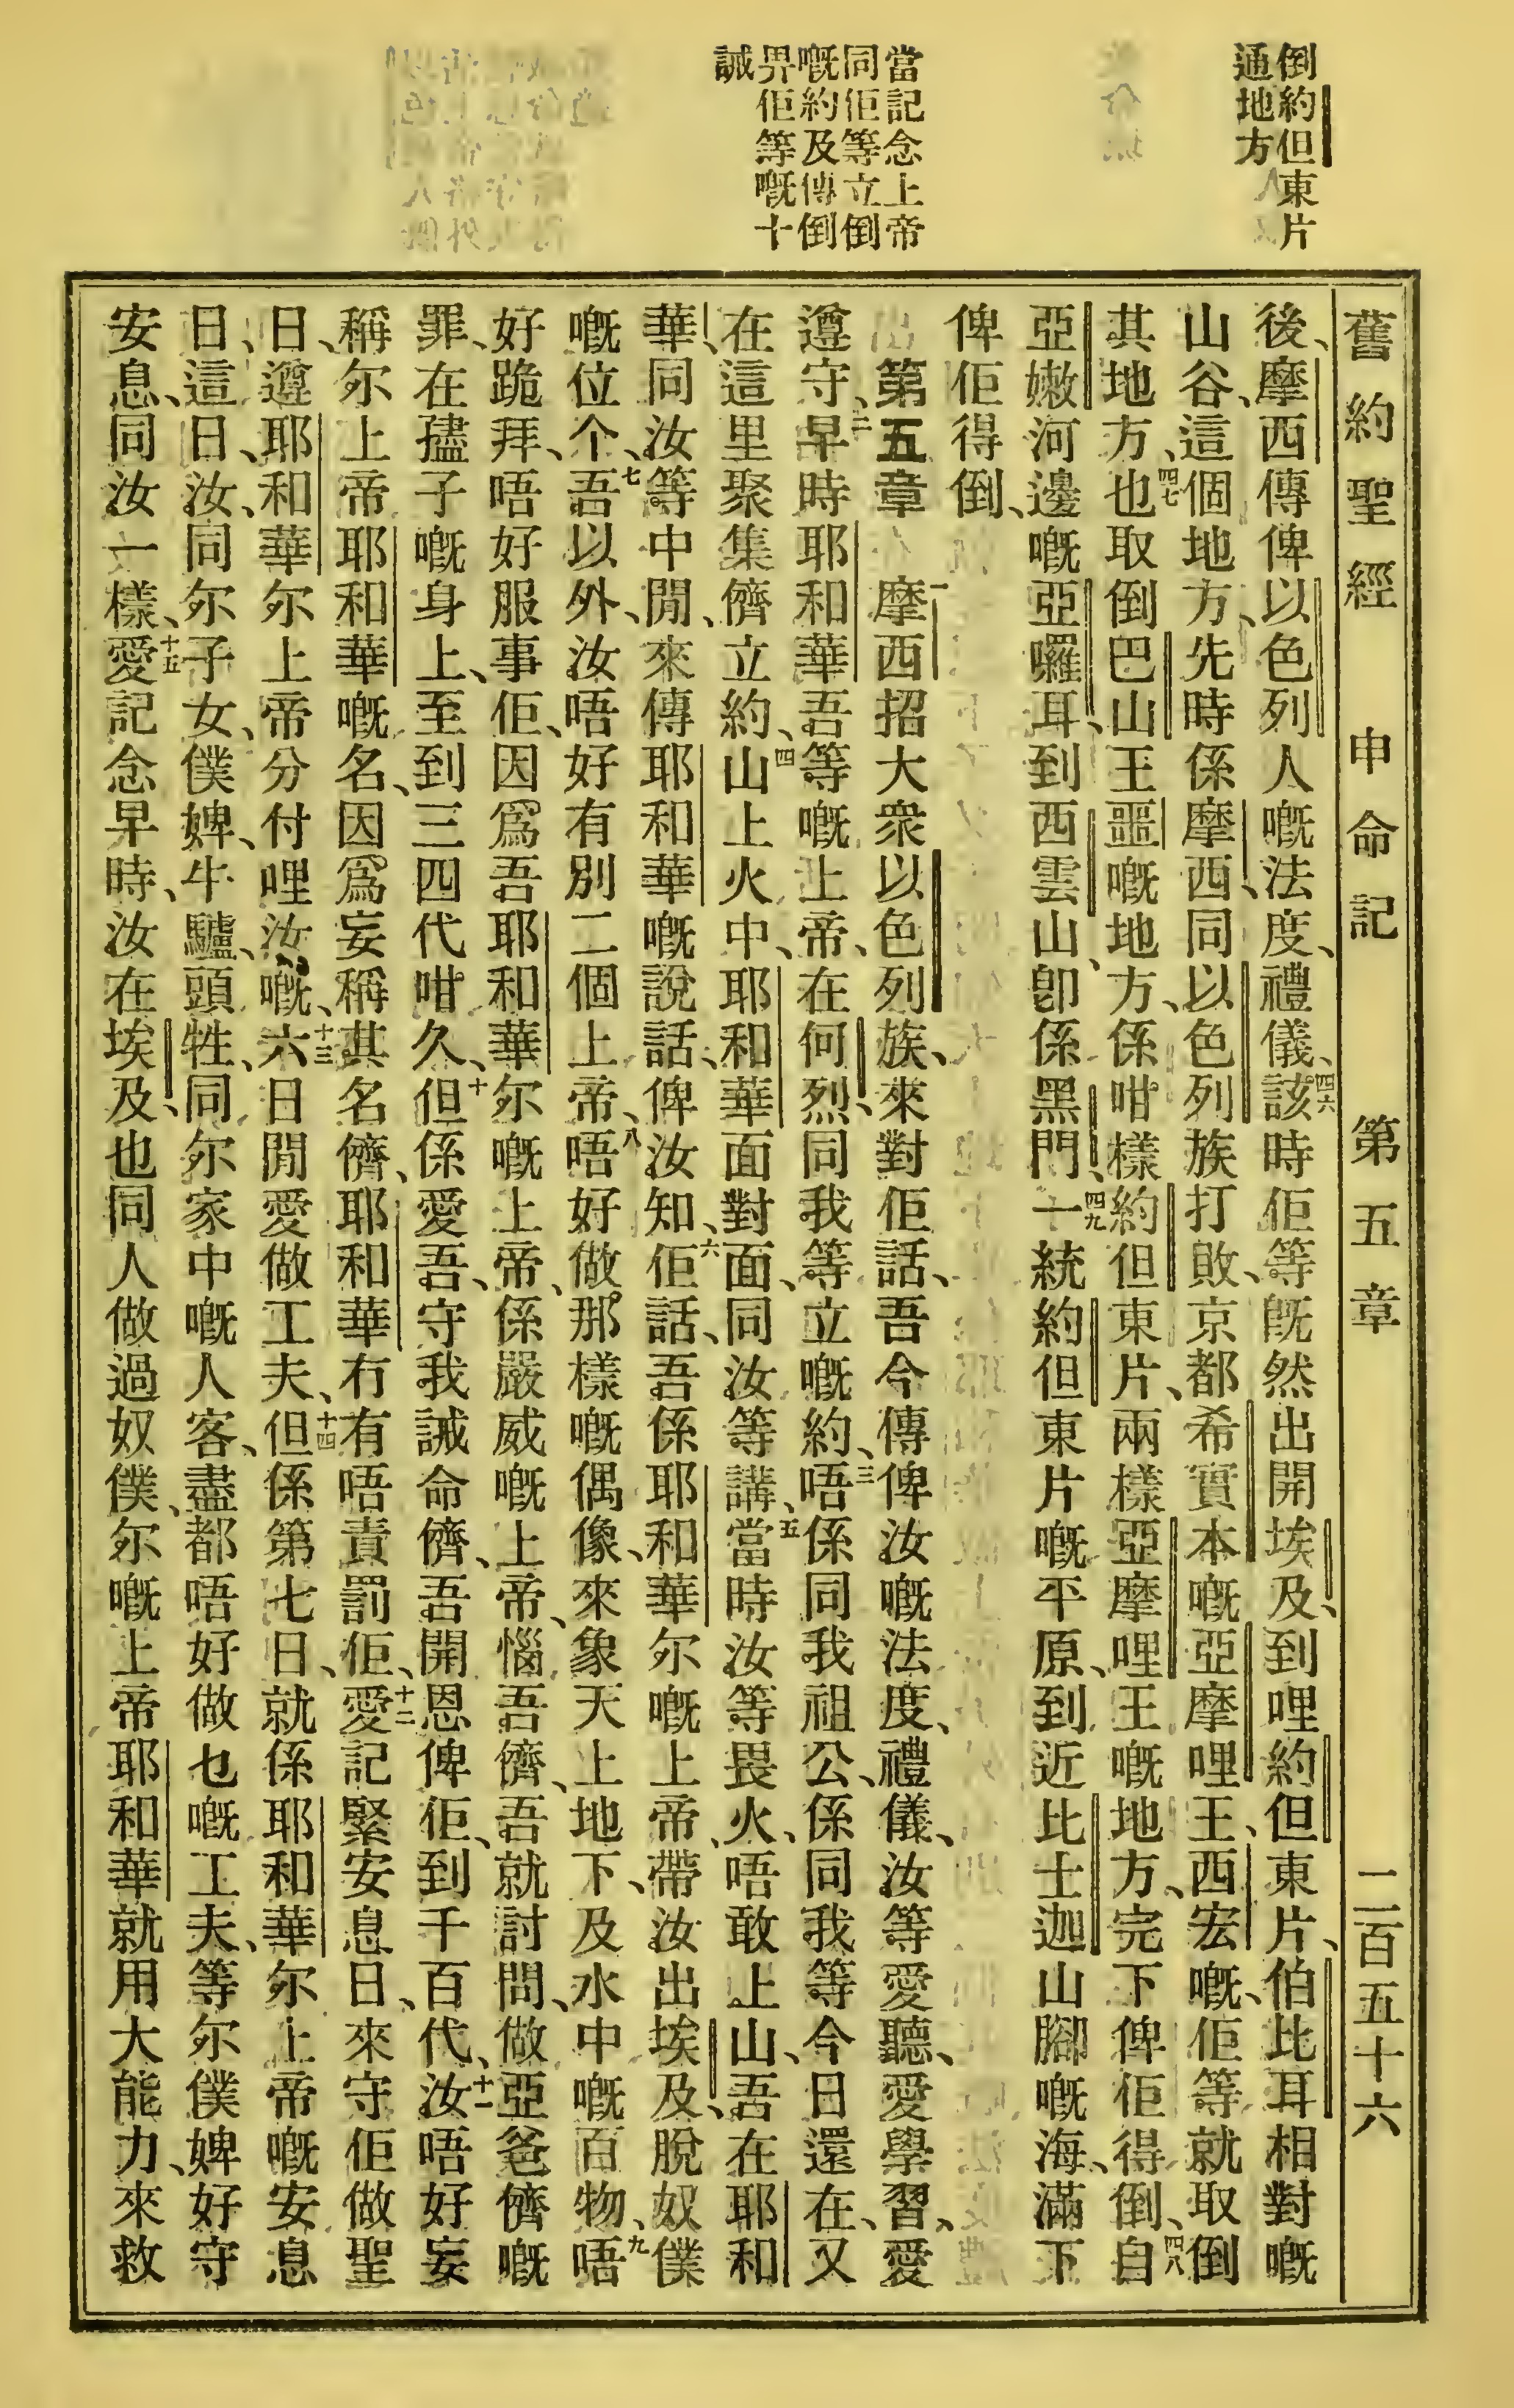 倒約但東片
通地方
當記念上帝
同佢等立倒
嘅約及傳倒
畀佢等嘅十
誡
舊約聖經 申命記 第五章 二百五十六
後、摩西傳俾以色列人嘅法度、禮儀、四六該時佢等既然出開埃及、到哩約但東片、伯比耳相對嘅
山谷、這個地方、先時係摩西、同以色列族打敗、京都希實本嘅亞摩哩王、西宏嘅、佢等就取倒
其地方、四七也取倒巴山王噩嘅地方、係咁樣約但東片、兩樣亞摩哩王嘅地方、完下俾佢得倒、四八自
亞嫩河邊嘅亞囉耳、到西雲山、卽係黑門、四九一統約但東片嘅平原、到近比士迦山腳嘅海、滿下
俾佢得倒、
第五章 一摩西招大衆以色列族、來對佢話、吾今傳俾汝嘅法度、禮儀、汝等愛聽、愛學習、愛
遵守、二早時耶和華吾等嘅上帝、在何烈、同我等立嘅約、三唔係同我祖公、係同我等今日還在、又
在這里聚集儕立約、四山上火中、耶和華面對面、同汝等講、五當時汝等畏火、唔敢上山、吾在耶和
華、同汝等中閒、來傳耶和華嘅說話、俾汝知、六佢話、吾係耶和華尔嘅上帝、帶汝出埃及、脫奴僕
嘅位个、七吾以外、汝唔好有別二個上帝、八唔好做那樣嘅偶像、來象天上地下、及水中嘅百物、九唔
好跪拜、唔好服事佢、因爲吾耶和華尔嘅上帝、係嚴威嘅上帝、惱吾儕、吾就討問、做亞爸儕嘅
罪、在孻子嘅身上、至到三四代咁久、十但係愛吾、守我誡命儕、吾開恩俾佢、到千百代、十一汝唔好妄
稱尔上帝耶和華嘅名、因爲妄稱其名儕、耶和華冇有唔責罰佢、十二愛記緊安息日、來守佢做聖
日、遵耶和華尔上帝分付哩汝嘅、十三六日閒愛做工夫、十四但係第七日、就係耶和華尔上帝嘅安息
日、這日、汝、同尔子女、僕婢、牛驢、頭牲、同尔家中嘅人客、盡都唔好做乜嘅工夫、等尔僕婢好守
安息、同汝一樣、十五愛記念早時、汝在埃及、也同人做過奴僕、尔嘅上帝耶和華就用大能力、來救